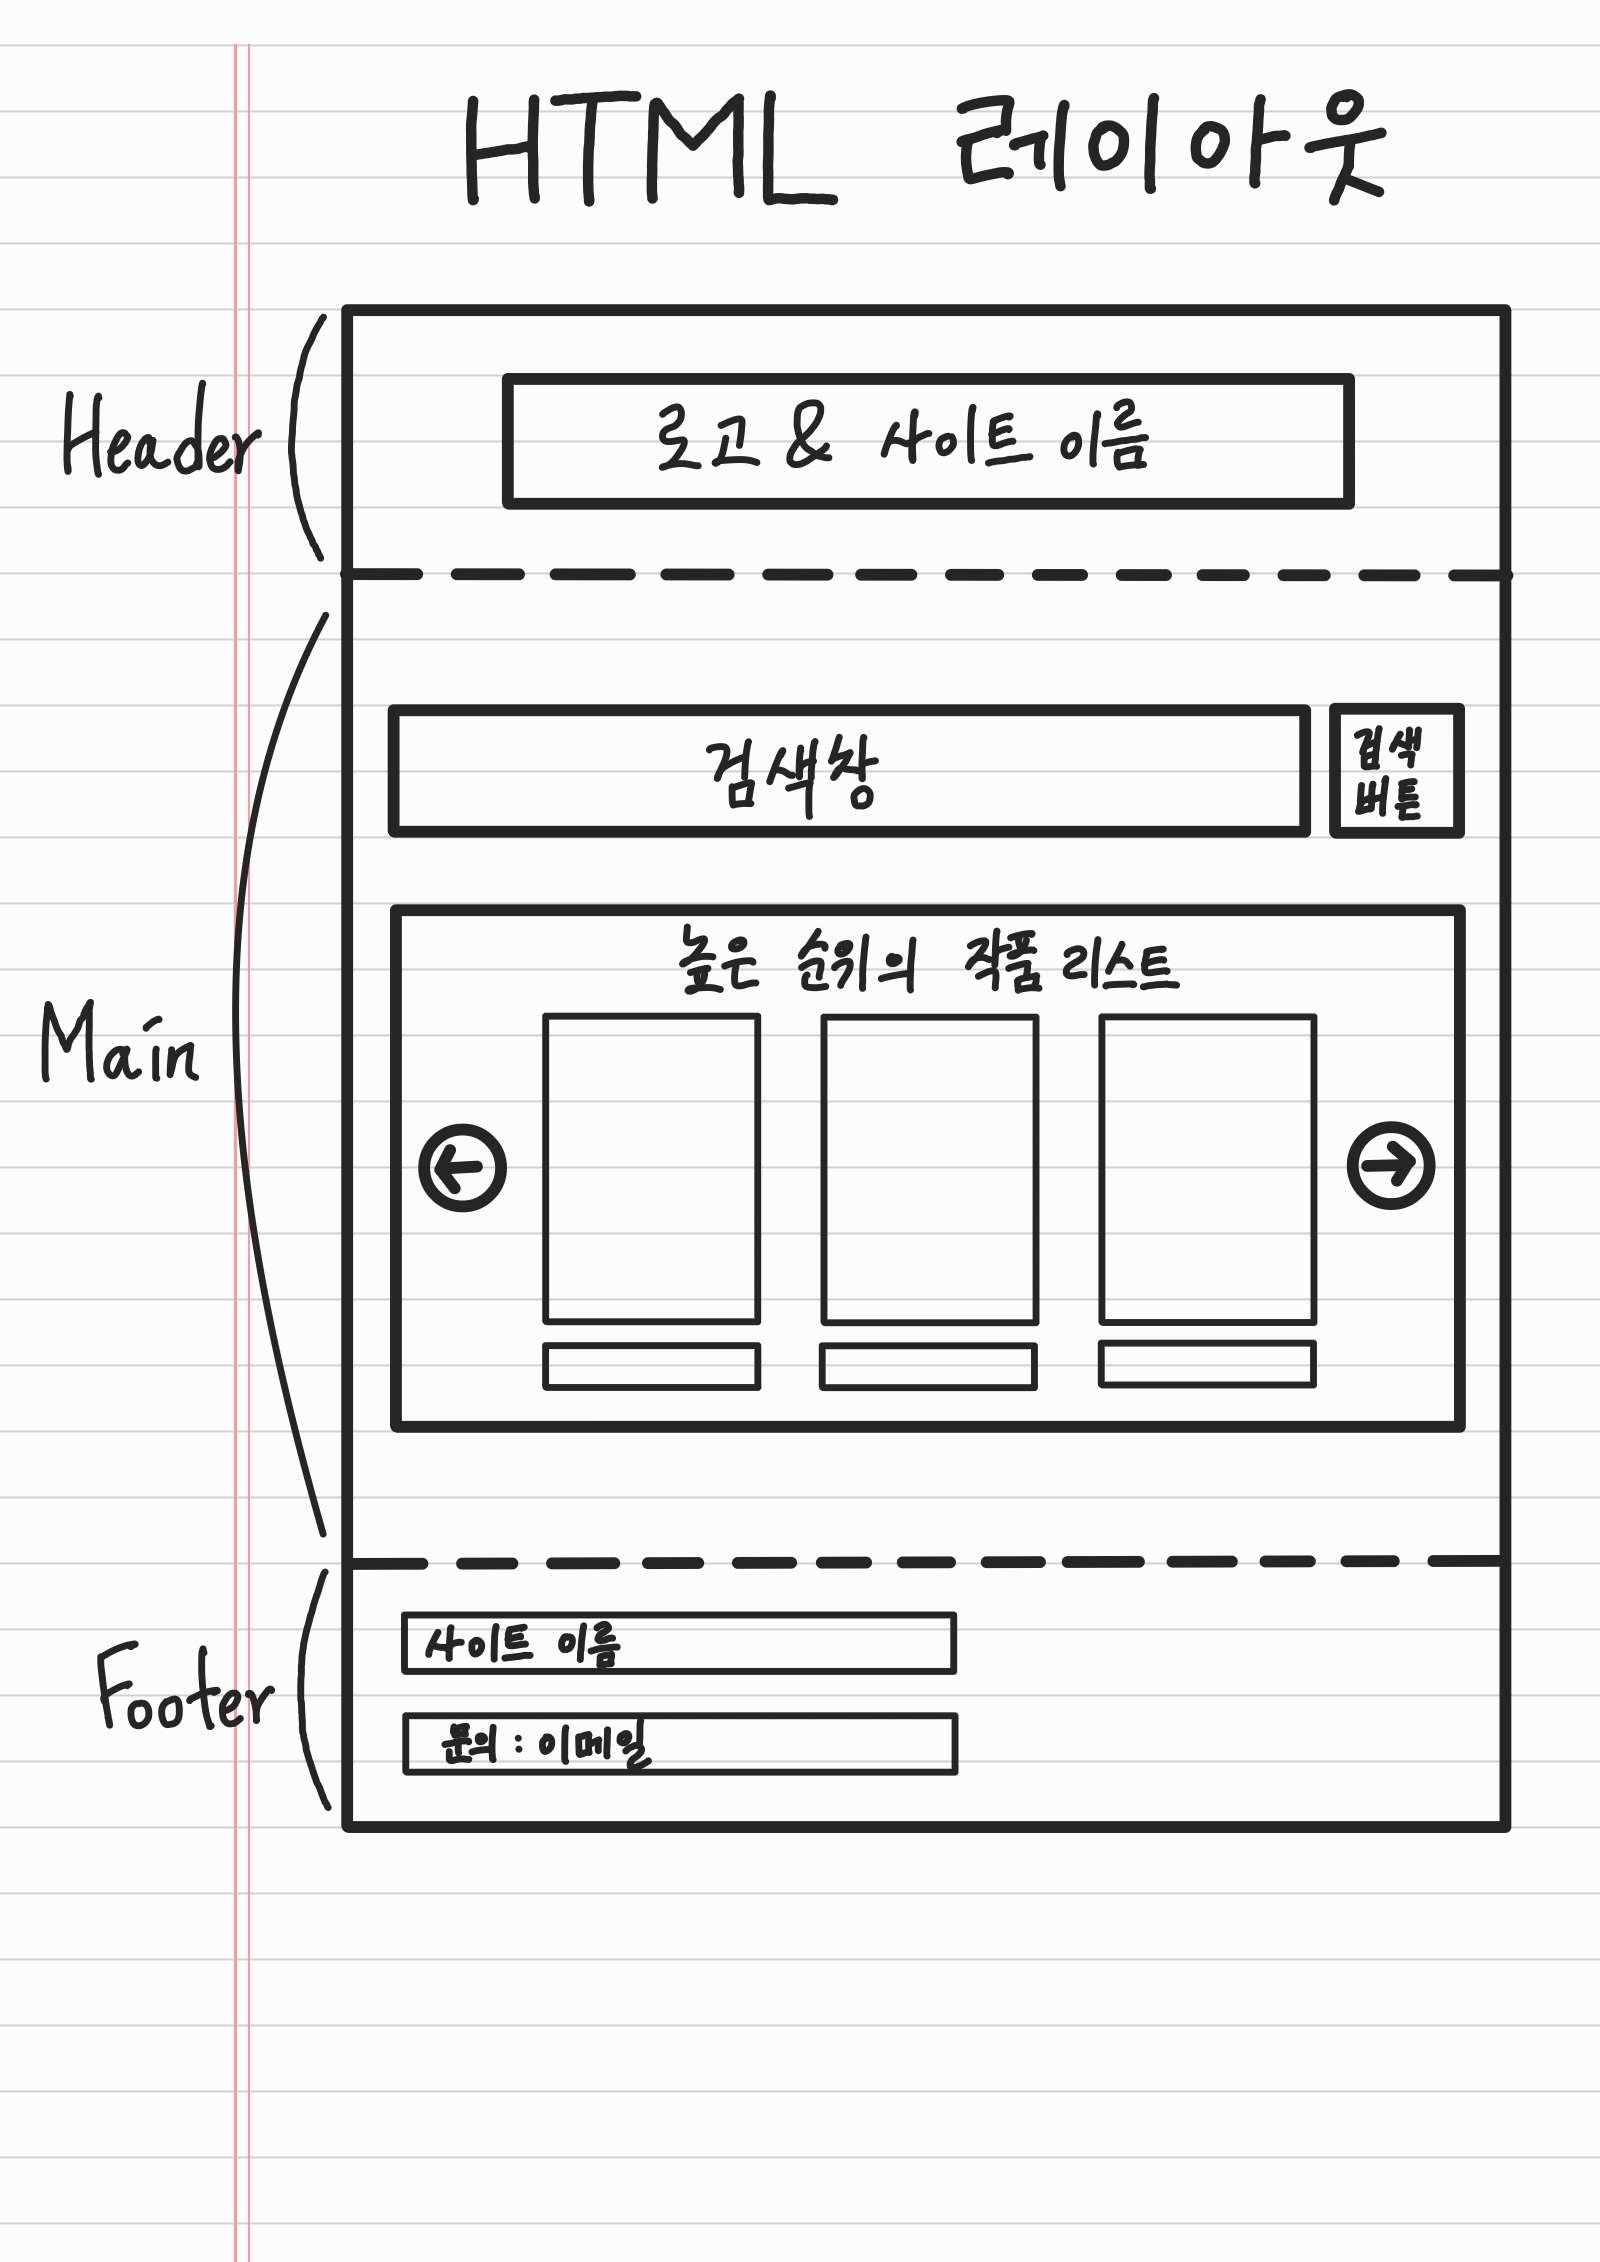 HTML 레이아웃
Header
로고 & 사이트 이름
Main
검색창
검색
버튼
높은 순위의 작품 리스트
Footer
사이트 이름
문의 : 이메일